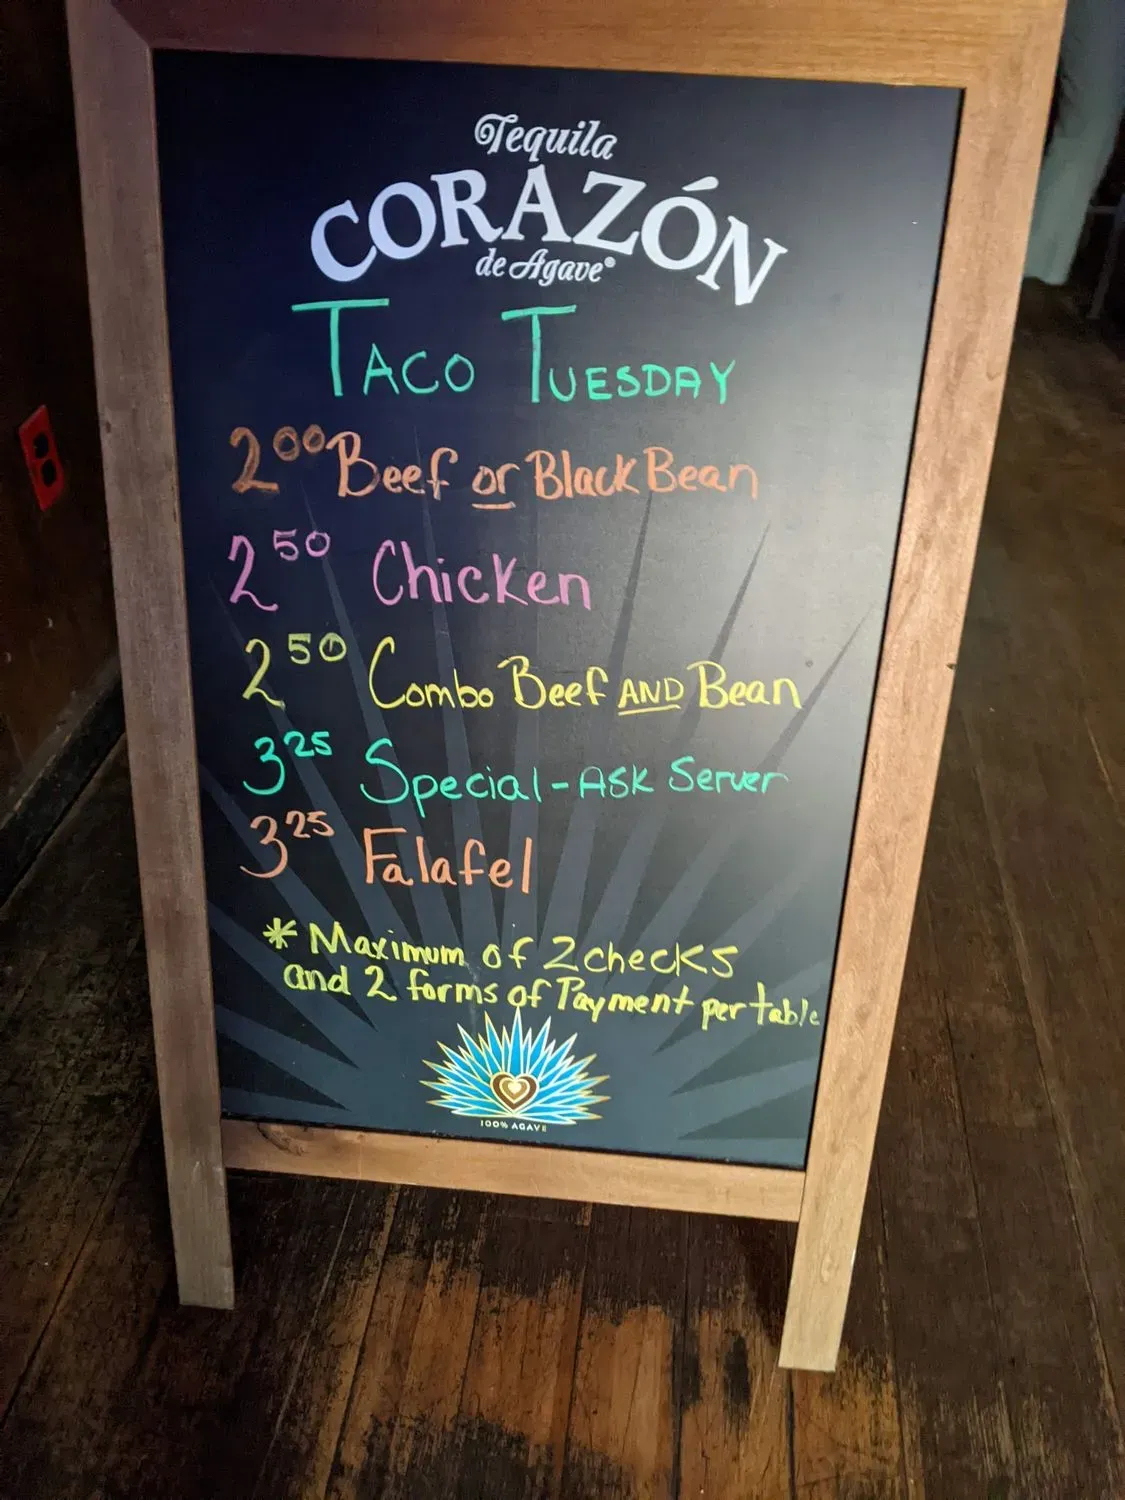 Tequila
CORAZÓN
de Agave®
TACO TUESDAY
2⁰⁰ Beef or Black Bean
2⁵⁰ Chicken
2⁵⁰ Combo Beef AND Bean
3²⁵ Special - ASK Server
3²⁵ Falafel
* Maximum of 2 checks
and 2 forms of Payment per table
100% AGAVE